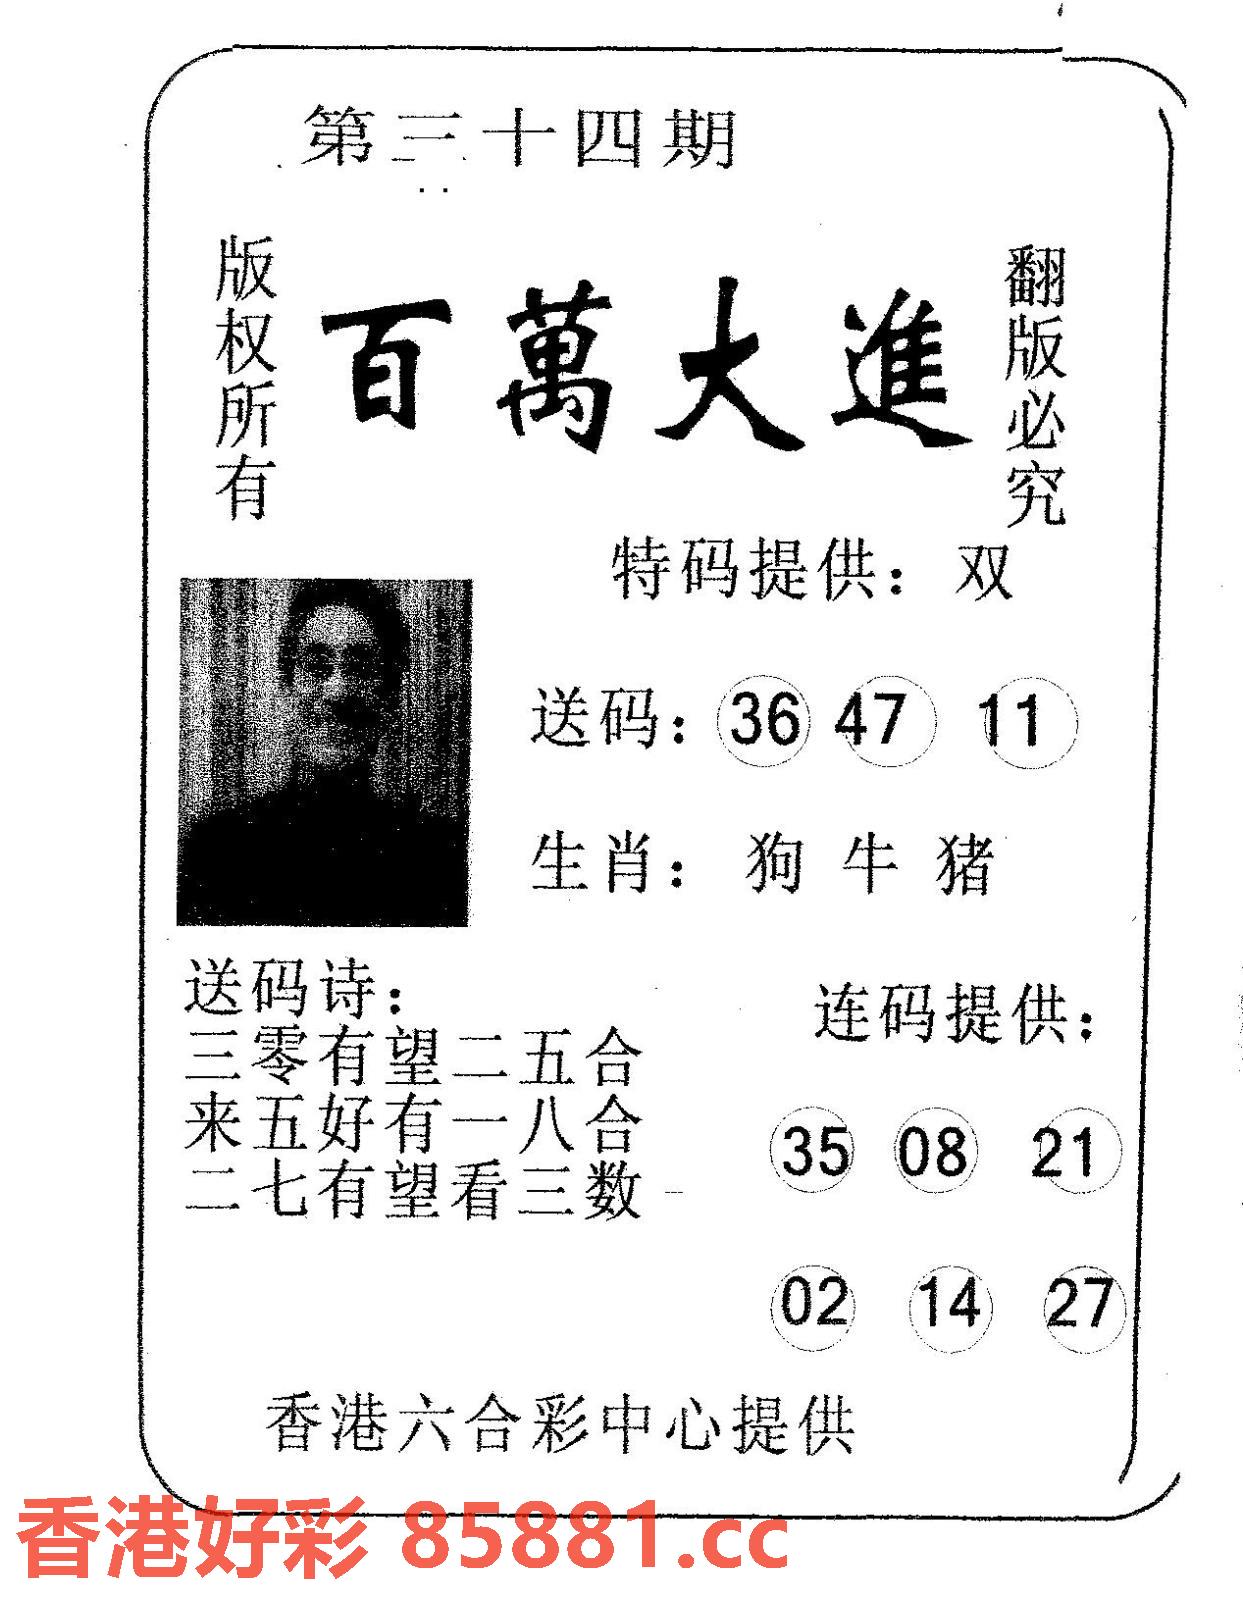 第三十四期
版权所有
百萬大進
翻版必究
特码提供：双
送码：36 47 11
生肖：狗 牛 猪
送码诗：
三零有望二五合
来五好有一八合
二七有望看三数
连码提供：
35 08 21
02 14 27
香港六合彩中心提供
香港好彩 85881.cc